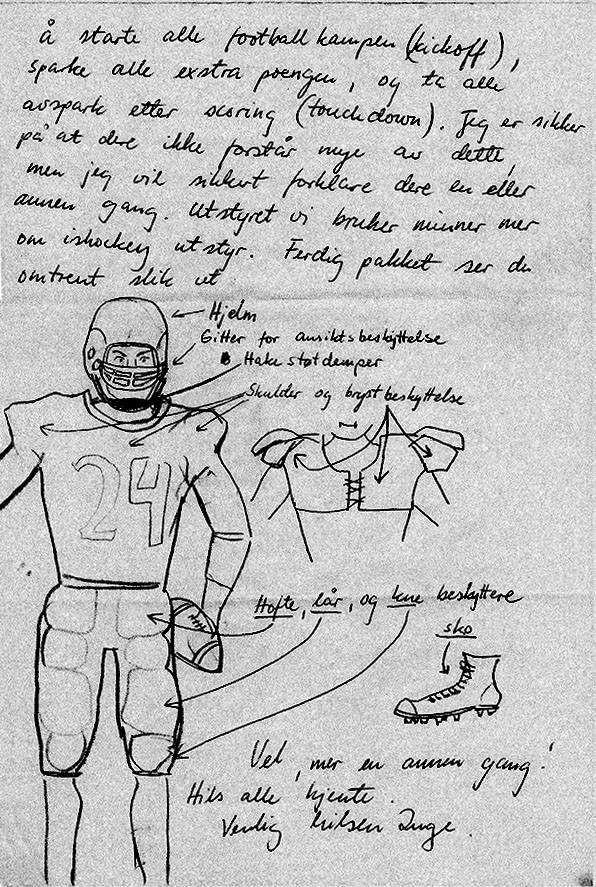 å starte alle football kampen (kickoff),
sparke alle exstra poengen, og ta alle
avspark etter scoring (touchdown). Jeg er sikker
på at dere ikke forstår mye av dette,
men jeg vil sikkert forklare dere en eller
annen gang. Utstyret vi bruker minner mer
om ishockey utstyr. Ferdig pakket ser du
omtrent slik ut
Hjelm
Gitter for ansiktsbeskyttelse
Hake støtdemper
Skulder og bryst beskyttelse
24
Hofte, lår, og kne beskyttere
sko
Vel, mer en annen gang!
Hils alle hjemme.
Vennlig hilsen Inge.